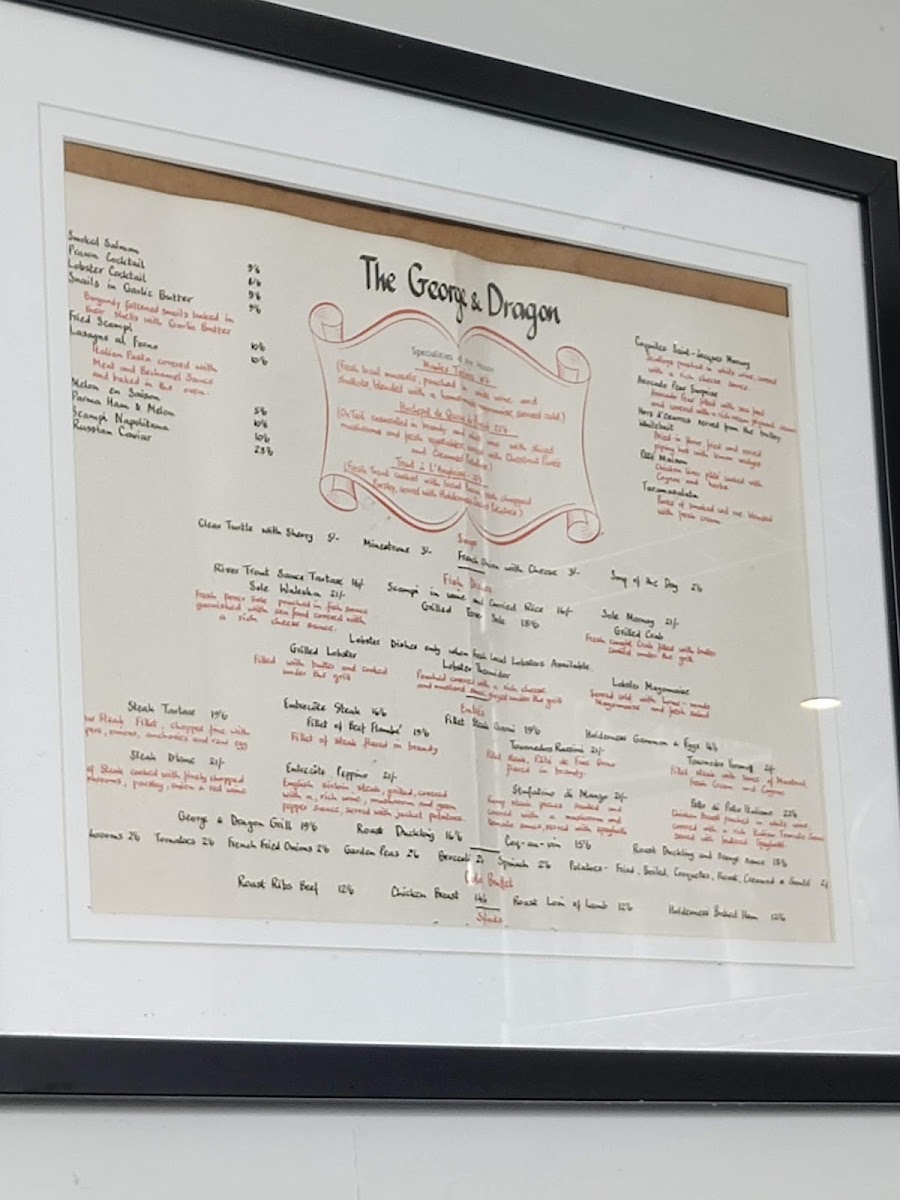 The George & Dragon
Smoked Salmon 9/6
Prawn Cocktail 8/6
Lobster Cocktail 9/6
Snails in Garlic Butter 9/6
Burgundy fattened snails baked in
their shells with Garlic Butter
Fried Scampi 10/6
Lasagne al Forno 10/6
Italian Pasta covered with
Meat and Bechamel Sauce
and baked in the oven.
Melon en Saison 5/6
Parma Ham & Melon 10/6
Scampi Napolitana 10/6
Russian Caviar 25/6
Specialities of the House
(Fresh local mussels, poached in white wine and
shallots, blended with a served cold)
(Ox Tail in brandy and wine with
mushrooms and fresh vegetables, with Chestnut Purée
and Creamed Potatoes)
(Fresh Trout cooked with local chopped
Parsley, served with Potatoes)
Coquilles Saint-Jacques Mornay
Scallops poached in white wine, covered
with a rich cheese sauce.
Avocado Pear Surprise
Avocado Pear filled with sea food
and covered with a rich cream
Hors d'oeuvres served from the trolley
Whitebait
in flour, fried and served
piping hot with lemon wedges
Pâté Maison
Chicken liver pâté cooked with
Cognac and herbs
Taramasalata
Puree of smoked cod roe blended
with fresh cream.
Soups
Clear Turtle with Sherry 5/- Minestrone 3/- French Onion with Cheese 3/- Soup of the Day 2/6
Fish Dishes
River Trout Sauce Tartare 16/- Scampi in wine and Curried Rice 16/- Sole Mornay 21/-
Sole Waleska 21/- Grilled Dover Sole 18/6 Grilled Crab
Fresh Dover Sole poached in fish sauce
garnished with sea food covered with
a rich cheese sauce.
Fresh caught Crab filled with butter
cooked under the grill
Lobster Dishes only when fresh local Lobsters Available.
Grilled Lobster Lobster Thermidor Lobster Mayonnaise
Filled with butter and cooked
under the grill
Poached covered with a rich cheese
and mustard sauce, under the grill
Served cold with home-made
Mayonnaise and fresh salad
Entrées
Steak Tartare 19/6 Entrecôte Steak 16/6 Fillet Steak Garni 19/6 Holderness Gammon & Eggs 14/6
Steak Fillet, chopped fine with
onions, anchovies and raw egg
Fillet of Beef Flambé 19/6
Fillet of steak flared in brandy
Tournedos Rossini 21/-
Fillet steak, Pâté de Foie Gras
flared in brandy.
Fresh Cream and Cognac
Steak Diane 21/-
of Steak cooked with finely chopped
parsley, onion & red wine
Entrecôte Peppino 21/-
English sirloin steak, grilled, covered
with a rich wine, mushroom and green
pepper sauce, served with jacket potatoes.
Stufatino di Manzo 21/-
covered with a mushroom and
sauce, served with spaghetti
Petto di Pollo Italiano 22/6
Chicken Breast poached in white wine,
covered with a rich Italian Tomato Sauce
served with buttered Spaghetti
George & Dragon Grill 19/6 Roast Duckling 16/6 Coq-au-vin 15/6 Roast Duckling and Orange sauce 18/6
Tomatoes 2/6 French Fried Onions 2/6 Garden Peas 2/6 Broccoli Spinach 2/6 Potatoes - Fried, Boiled, Croquettes, Roast, Creamed & Sauté 2/-
Cold Buffet
Roast Ribs Beef 12/6 Chicken Breast 14/6 Roast Loin of Lamb 12/6 Holderness Baked Ham 12/6
Salads